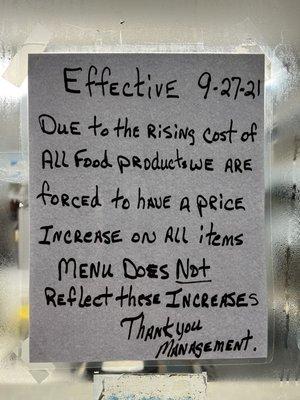 Effective 9-27-21
Due to the rising cost of
All food products we are
forced to have a price
increase on all items
Menu Does Not
Reflect these Increases
Thank you
Management.